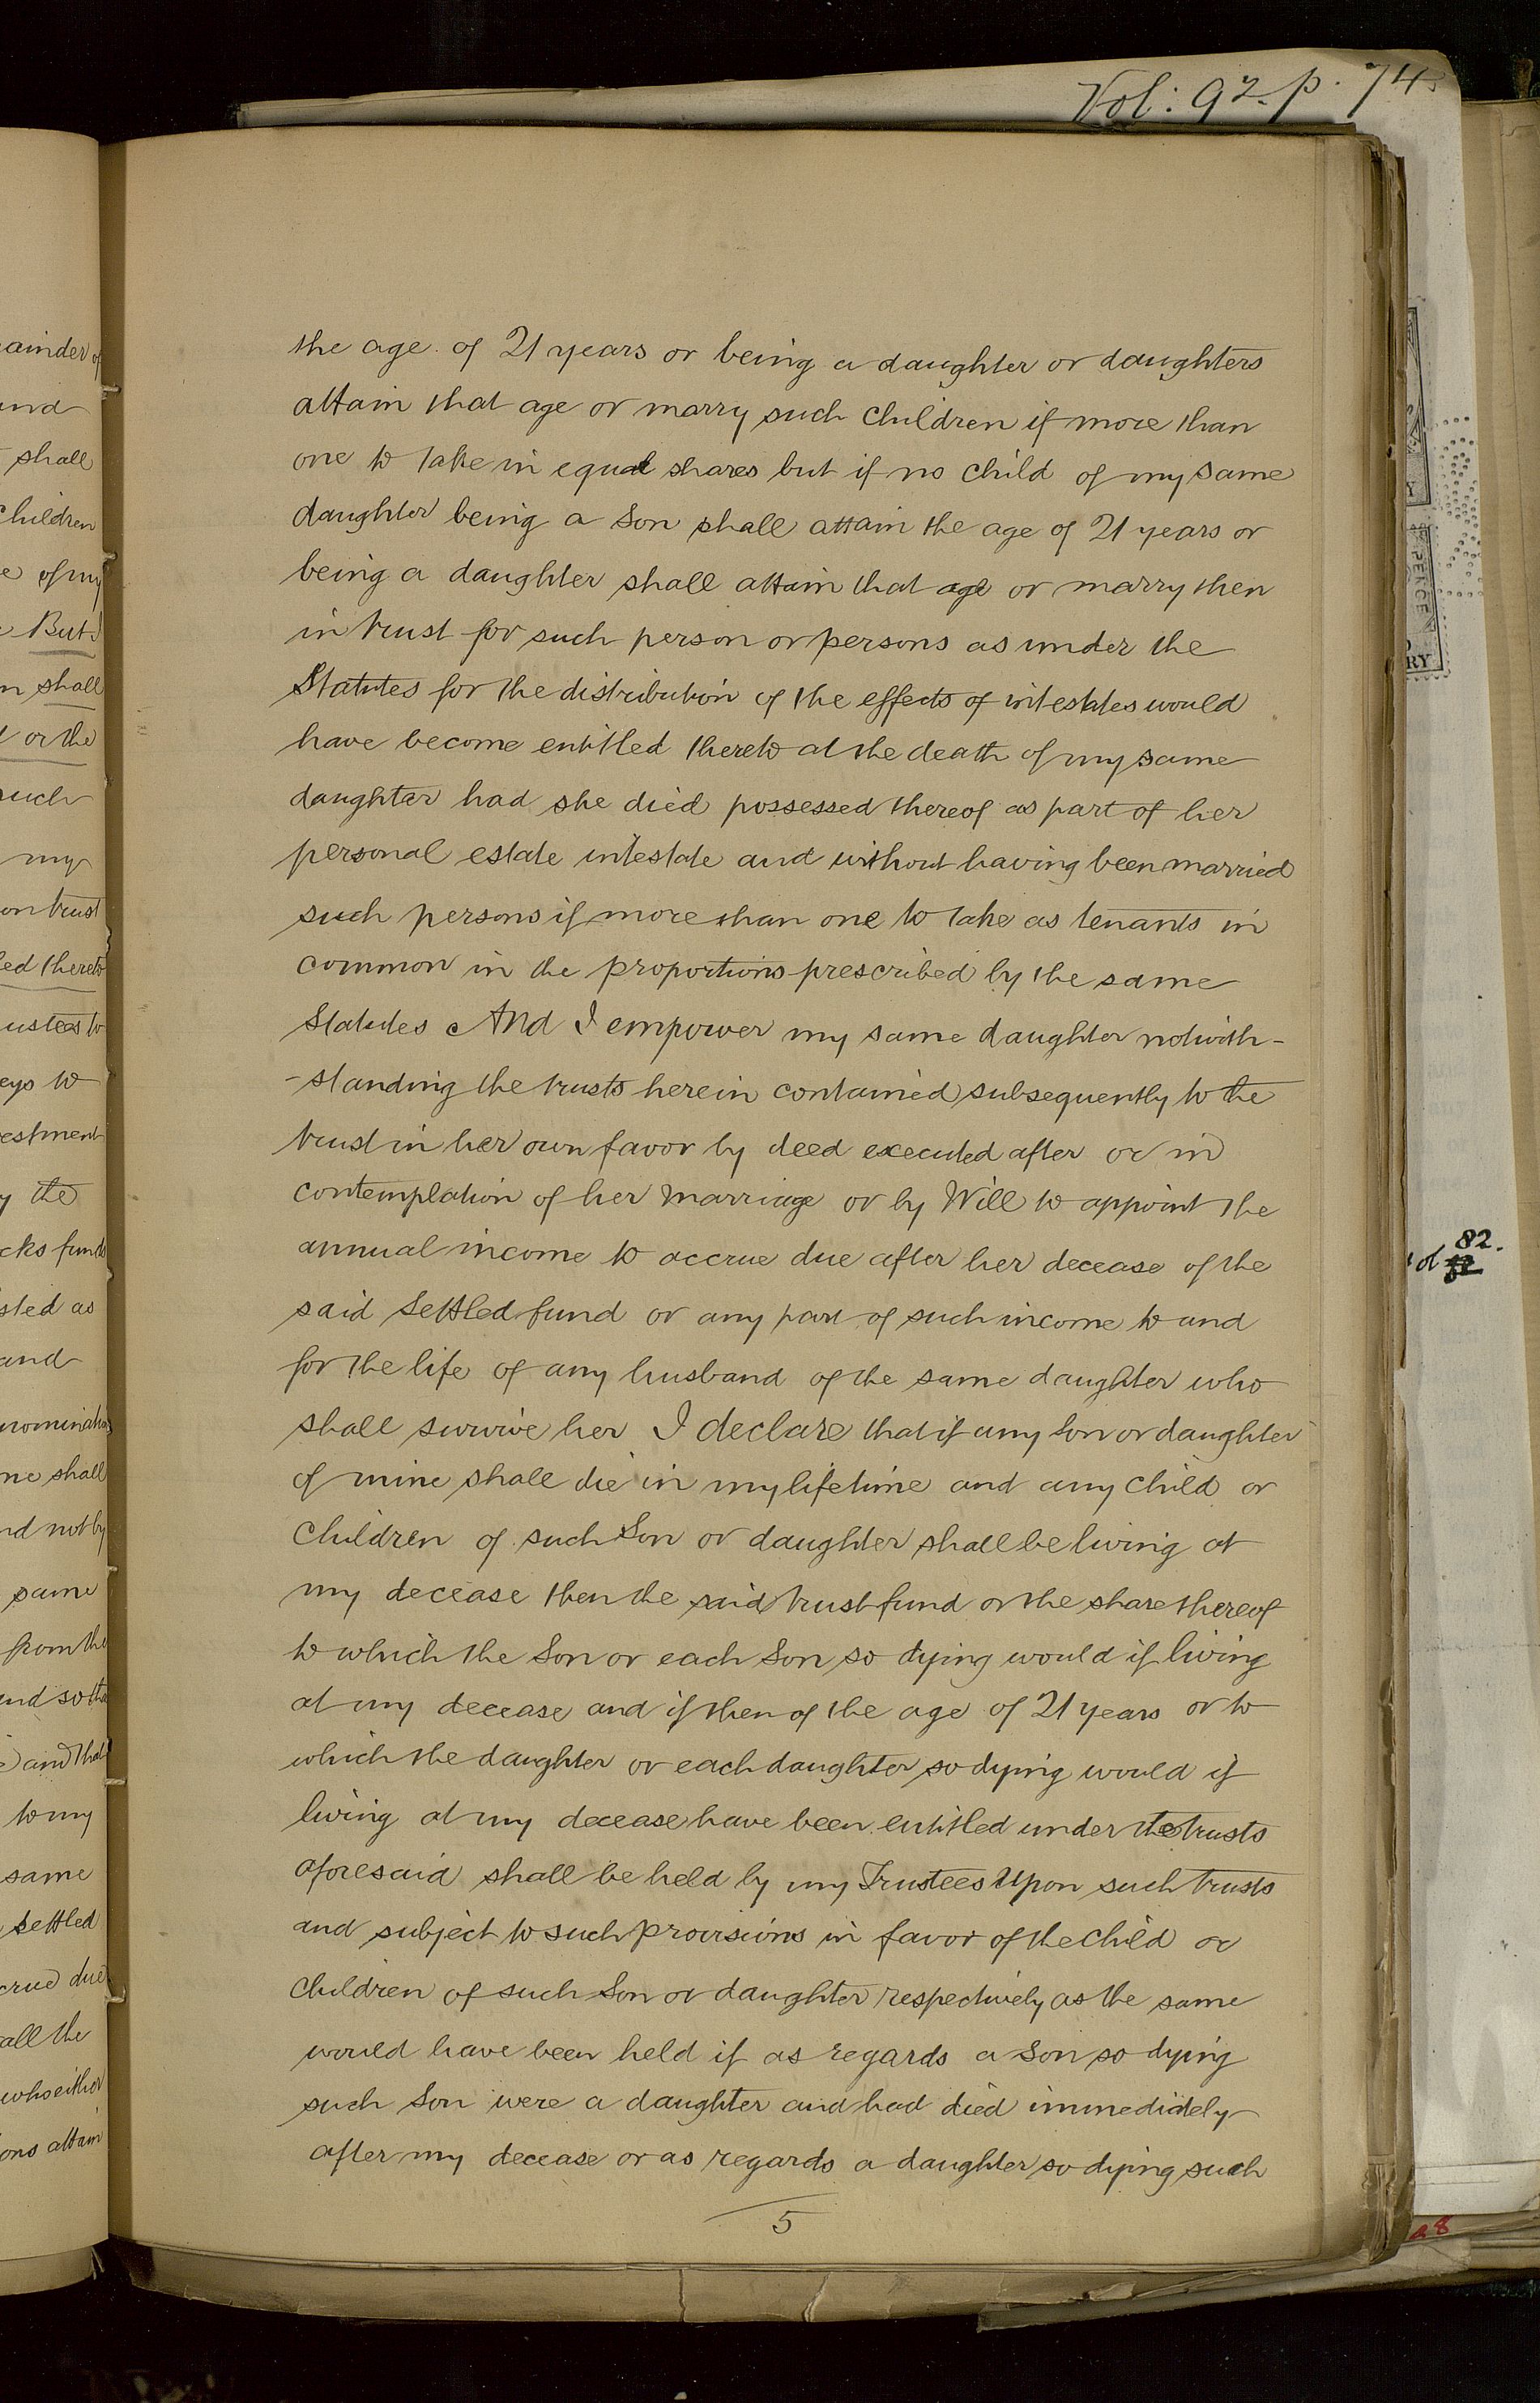 Vol: 92. p. 74.
the age of 21 years or being a daughter or daughters
attain that age or marry such children if more than
one to take in equal shares but if no child of my same
daughter being a Son shall attain the age of 21 years or
being a daughter shall attain that age or marry then
in trust for such person or persons as under the
Statutes for the distribution of the effects of intestates would
have become entitled thereto at the death of my same
daughter had she died possessed thereof as part of her
personal estate intestate and without having been married
such persons if more than one to take as tenants in
common in the proportions prescribed by the same
Statutes And I empower my same daughter notwith-
-standing the trusts herein contained subsequently to the
trust in her own favor by deed executed after or in
contemplation of her marriage or by Will to appoint the
annual income to accrue due after her decease of the
said Settled fund or any part of such income to and
for the life of any husband of the same daughter who
shall survive her I declare that if any Son or daughter
of mine shall die in my lifetime and any child or
children of such Son or daughter shall be living at
my decease then the said trust fund or the share thereof
to which the Son or each Son so dying would if living
at my decease and if then of the age of 21 years or to
which the daughter or each daughter so dying would if
living at my decease have been entitled under the trusts
aforesaid shall be held by my Trustees Upon such trusts
and subject to such provisions in favor of the child or
children of such Son or daughter respectively as the same
would have been held if as regards a Son so dying
such Son were a daughter and had died immediately
after my decease or as regards a daughter so dying such
5
ainder of
and
shall
children
e of my
But I
n shall
or the
such
my
on trust
ed thereto
ustees to
eys to
estment
y the
cks funds
sted as
and
ne shall
nd not by
same
from the
and so tha
and that
to my
same
settled
crue due
all the
who either
ons attain
82.
RY